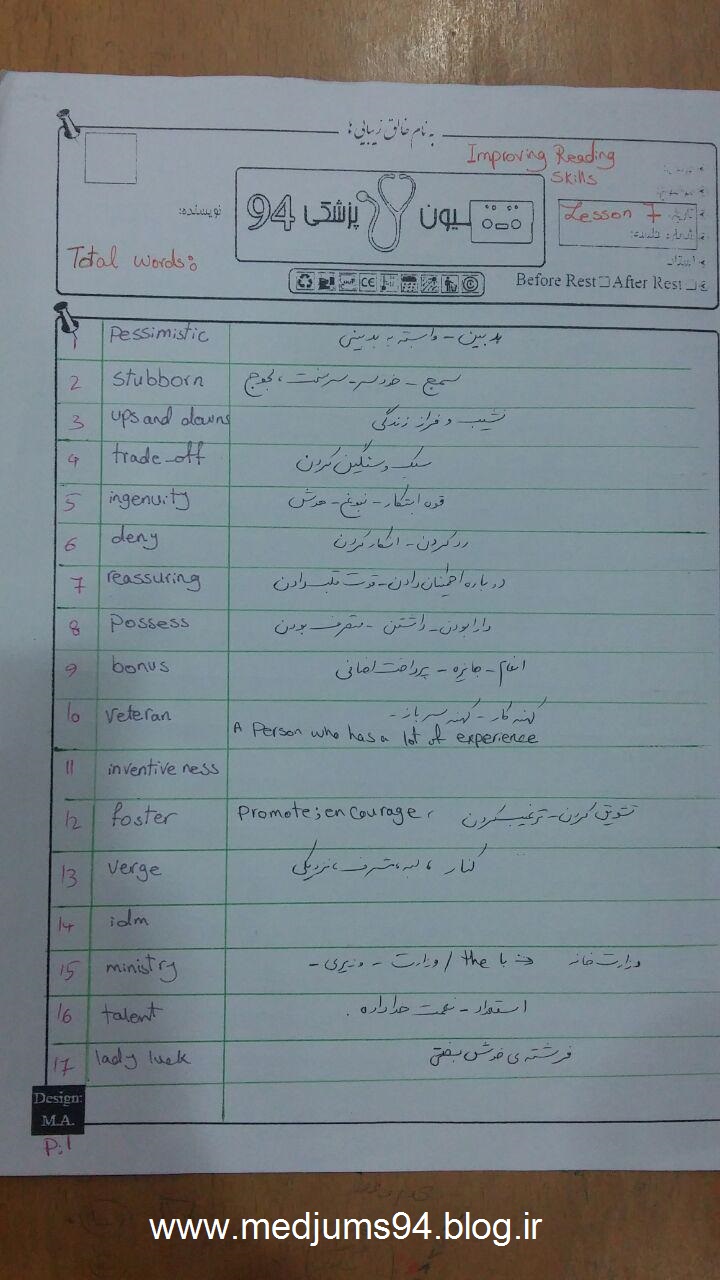 به نام خالق زیبایی ها
Improving Reading
Skills
نویسنده:
سیون پزشکی 94
Lesson 7
Total words:
CE
Before Rest After Rest
1 Pessimistic بدبین - وابسته به بدبینی
2 stubborn سمج - خودسر - سرسخت، لجوج
3 ups and downs نشیب و فراز زندگی
4 trade-off سبک و سنگین کردن
5 ingenuity قوه ابتکار - نبوغ - هوش
6 deny رد کردن - انکار کردن
7 reassuring دوباره اطمینان دادن - قوت قلب دادن
8 Possess دارا بودن - داشتن - متصرف بودن
9 bonus انعام - جایزه - پرداخت اضافی
10 veteran کهنه کار - کهنه سرباز -
A Person who has a lot of experience
11 inventive ness
12 foster Promote; encourage, تشویق کردن - ترغیب کردن
13 verge کنار، لبه، شرف، نزدیکی
14 idm
15 ministry وزارت خانه با the / وزارت - وزیری -
16 talent استعداد - نعمت خداداده.
17 lady luck فرشته ی خوش بختی
Design:
M.A.
P.1
www.medjums94.blog.ir